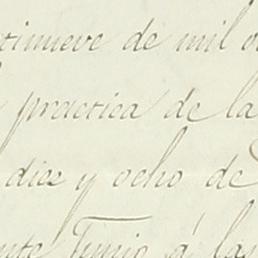 tinueve de mil o
practica de la
diez y ocho de
nte Junio á las